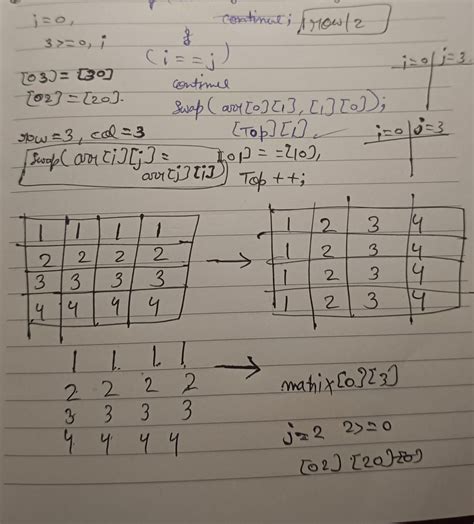 i=0,
continue;
row/2
3>=0, i
if
(i==j)
continue
i=0 | j=3
[03] = [30]
[02] = [20].
Swap(arr[0][1], [1][0]);
[Top][1]
row=3, col=3
i=0 | j=3
Swap(arr[i][j] =
arr[j][i])
[01] = =[10],
Top ++;
1 1 1 1
2 2 2 2
3 3 3 3
4 4 4 4
→
1 2 3 4
1 2 3 4
1 2 3 4
1 2 3 4
1 1. 1. 1
2 2 2 2
3 3 3 3
4 4 4 4
→
matrix[0][3]
j=2 2>=0
[02] [20]